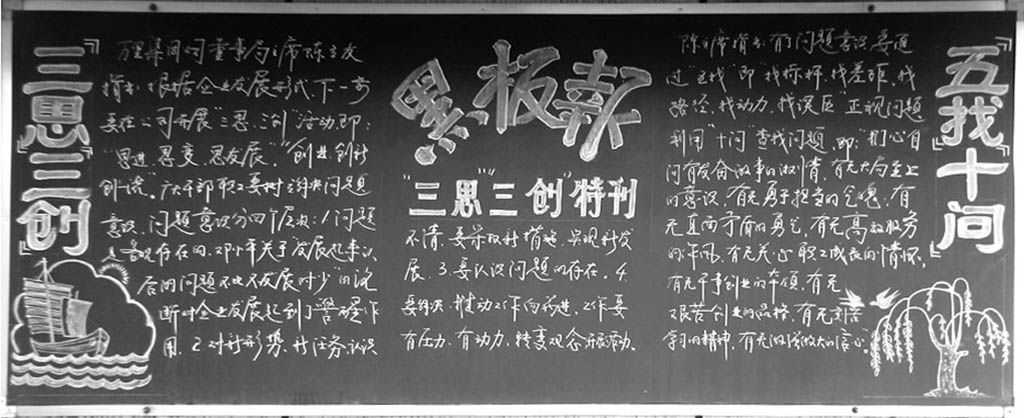 三思三创
万里集团司董事局主席陈
指出:根据企业发展形式,下一步
要在公司开展"三思三创"活动,即:
"思进、思变、思发展","创业、创新
创一流"。广大干部职工要树立解决问题
意识,问题意识分四个层次:1.问题
是客观存在的,邓小平关于发展起来以
后的问题不比不发展时少的论
断对企业发展起到了警醒作
用。2.对新形势、新任务认识
黑板款
"三思""三创"特刊
不清,要采取新措施,实现新发
展。3.要认识问题的存在。4.
要解决、推动工作向前进,工作要
有压力、有动力,转变观念开展活动。
陈主席指出:有了问题意识要通
过"五找"即"找标杆、找差距、找
路径、找动力、找误区"正视问题
利用"十问"查找问题,即:"扪心自
问有无奋发干事的激情、有无大局至上
的意识、有无勇于担当的气魄、有
无直面矛盾的勇气、有无高效服务
的作风、有无关心职工成长的情怀、
有无干事创业的本领、有无
艰苦创业的品格、有无刻苦
学习的精神、有无做强做大的信心"。
『五找』『十问』